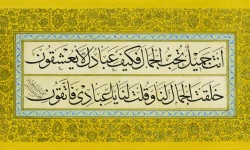 أنت جميل تحب الجمال فكيف عبادك لا يعشقون
خلقت الجمال لنا وقلت لنا يا عبادي فاتقون